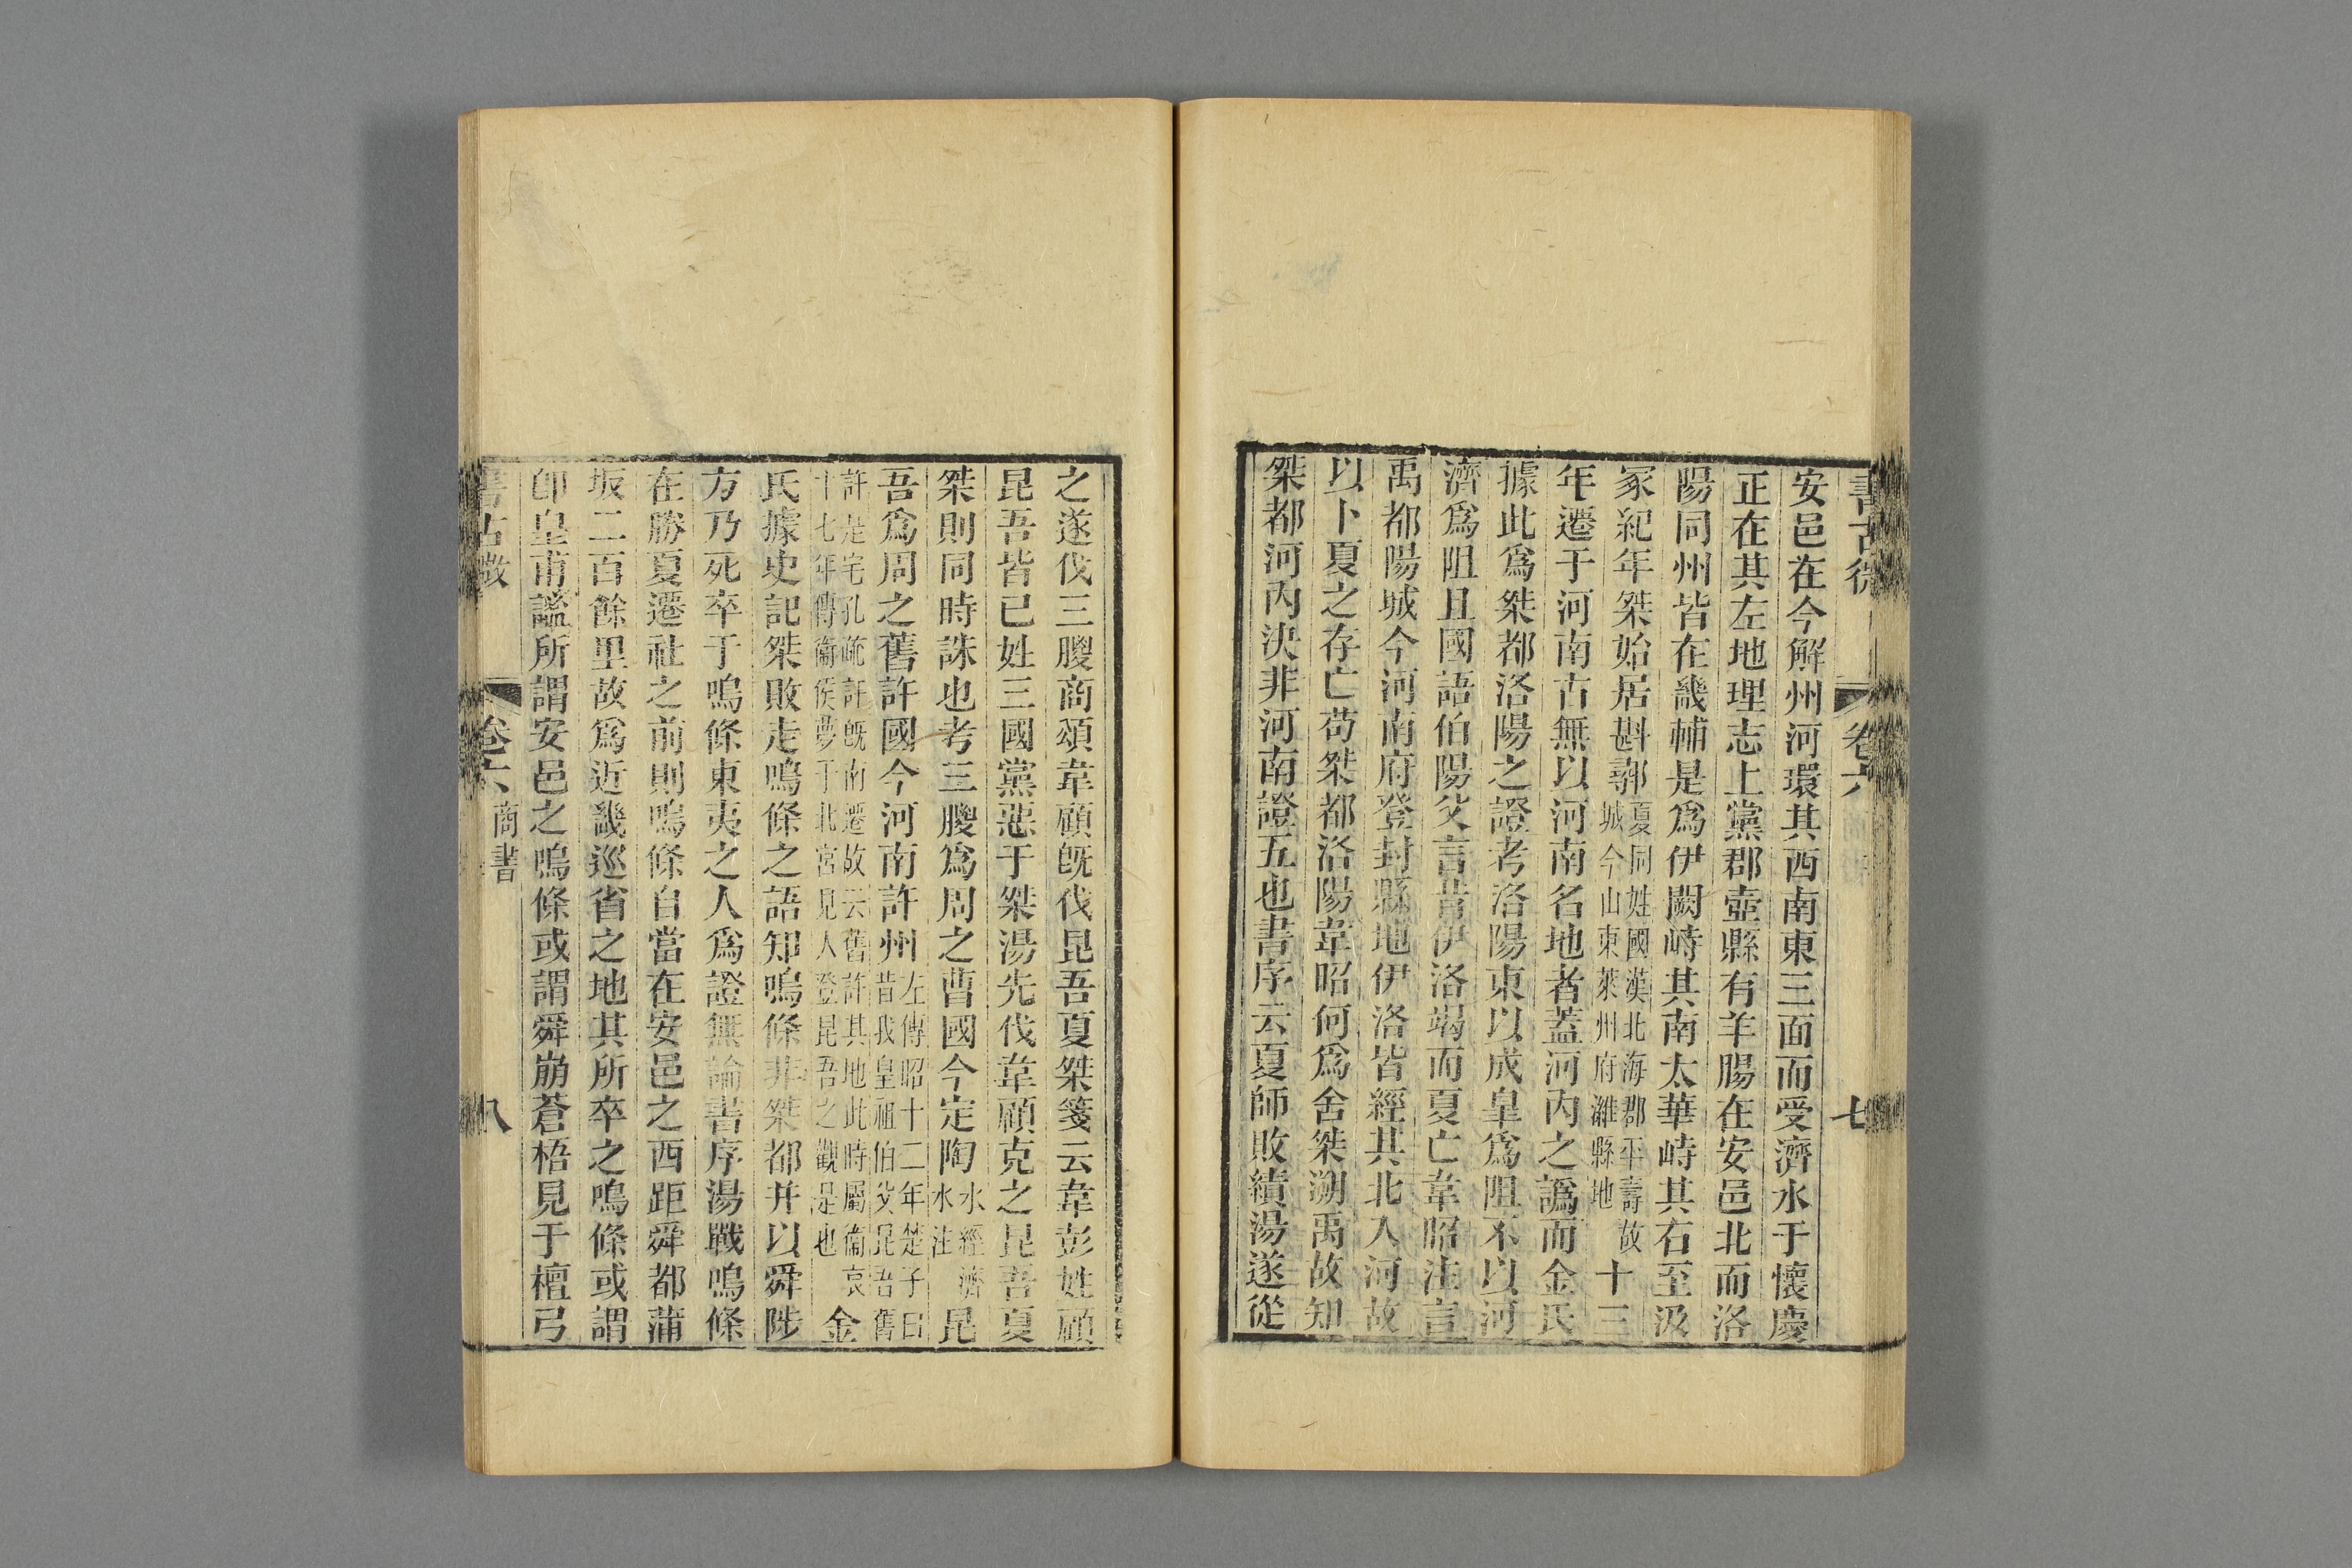 書古微
卷六
七
安邑在今解州河環其西南東三面而受濟水于懷慶
正在其左地理志上黨郡壺縣有羊腸在安邑北而洛
陽同州皆在畿輔是爲伊闕峙其南太華峙其右至汲
冢紀年桀始居斟鄩夏同姓國漢北海郡平壽故城今山東萊州府濰縣地十三
年遷于河南古無以河南名地者蓋河內之譌而金氏
據此爲桀都洛陽之證考洛陽東以成皐爲阻不以河
濟爲阻且國語伯陽父言昔伊洛竭而夏亡韋昭注言
禹都陽城今河南府登封縣地伊洛皆經其北入河故
以卜夏之存亡苟桀都洛陽韋昭何爲舍桀溯禹故知
桀都河內決非河南證五也書序云夏師敗績湯遂從
之遂伐三朡商頌韋顧旣伐昆吾夏桀箋云韋彭姓顧
昆吾皆已姓三國黨惡于桀湯先伐韋顧克之昆吾夏
桀則同時誅也考三朡爲周之曹國今定陶水經濟水注昆
吾爲周之舊許國今河南許州左傳昭十二年楚子曰昔我皇祖伯父昆吾舊
許是宅孔疏許旣南遷故云舊許其地此時屬衞哀十七年傳衞侯夢于北宮見人登昆吾之觀是也金
氏據史記桀敗走鳴條之語知鳴條非桀都并以舜陟
方乃死卒于鳴條東夷之人爲證無論書序湯戰鳴條
在勝夏遷社之前則鳴條自當在安邑之西距舜都蒲
坂二百餘里故爲近畿巡省之地其所卒之鳴條或謂
卽皇甫謐所謂安邑之鳴條或謂舜崩蒼梧見于檀弓
書古微
卷六 商書
八